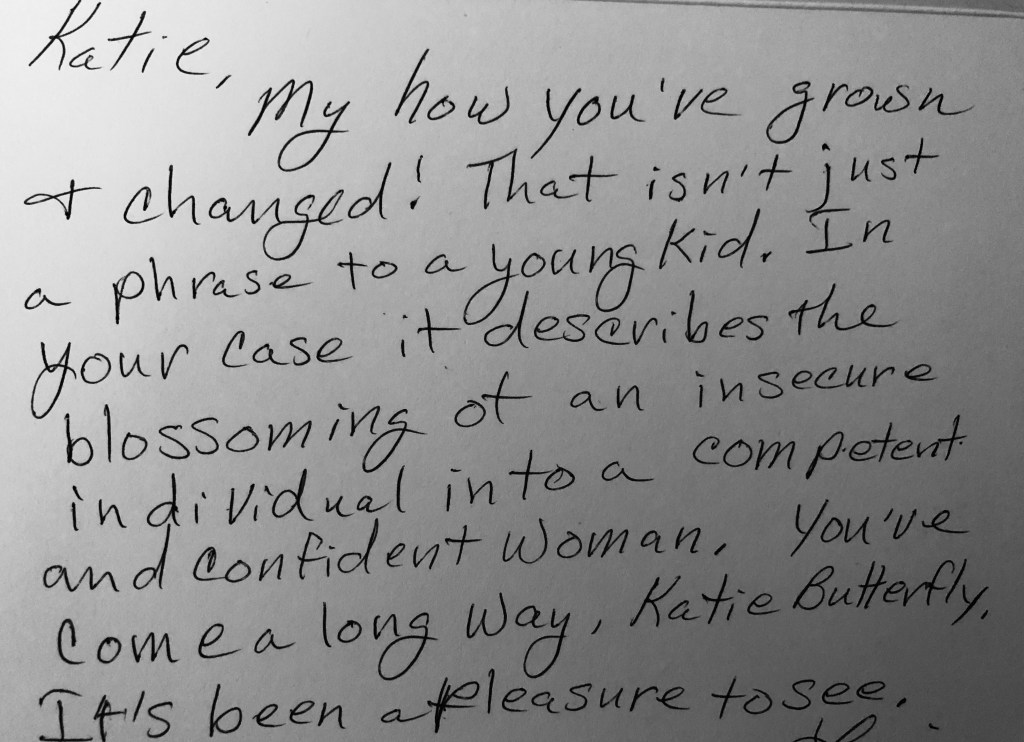 Katie,
My how you've grown
& changed! That isn't just
a phrase to a young kid. In
your case it describes the
blossoming of an insecure
individual into a competent
and confident woman. You've
come a long way, Katie Butterfly.
It's been a pleasure to see.